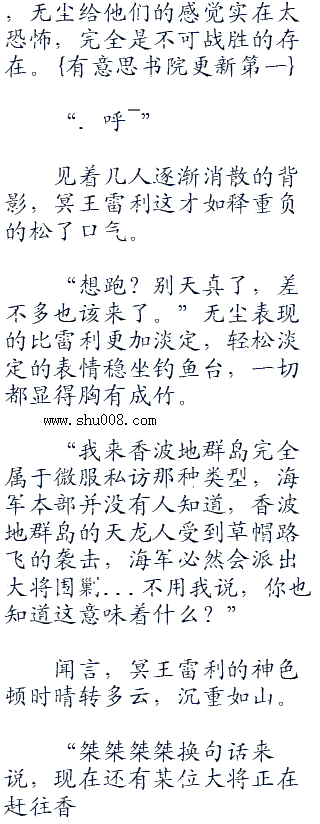 ，无尘给他们的感觉实在太
恐怖，完全是不可战胜的存
在。{有意思书院更新第一}
“．呼―”
见着几人逐渐消散的背
影，冥王雷利这才如释重负
的松了口气。
“想跑？别天真了，差
不多也该来了。”无尘表现
的比雷利更加淡定，轻松淡
定的表情稳坐钓鱼台，一切
都显得胸有成竹。
www.shu008.com
“我来香波地群岛完全
属于微服私访那种类型，海
军本部并没有人知道，香波
地群岛的天龙人受到草帽路
飞的袭击，海军必然会派出
大将围剿...不用我说，你也
知道这意味着什么？”
闻言，冥王雷利的神色
顿时晴转多云，沉重如山。
“桀桀桀桀换句话来
说，现在还有某位大将正在
赶往香